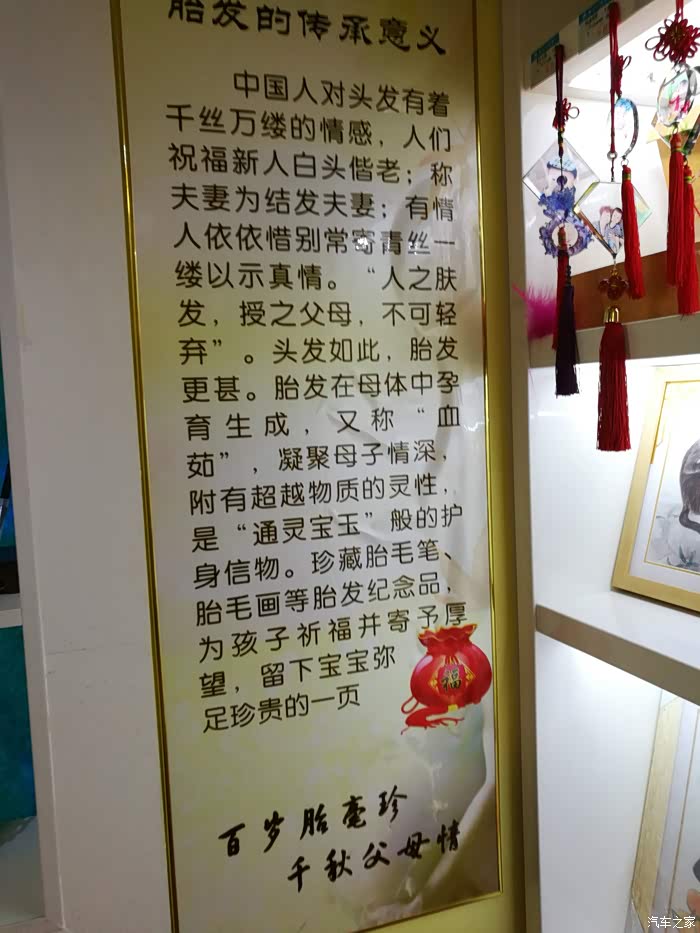 胎发的传承意义
中国人对头发有着
千丝万缕的情感，人们
祝福新人白头偕老；称
夫妻为结发夫妻；有情
人依依惜别常寄青丝一
缕以示真情。“人之肤
发，授之父母，不可轻
弃”。头发如此，胎发
更甚。胎发在母体中孕
育生成，又称“血
茹”，凝聚母子情深，
附有超越物质的灵性，
是“通灵宝玉”般的护
身信物。珍藏胎毛笔、
胎毛画等胎发纪念品，
为孩子祈福并寄予厚
望，留下宝宝弥
足珍贵的一页
福
百岁胎毫珍
千秋父母情
汽车之家